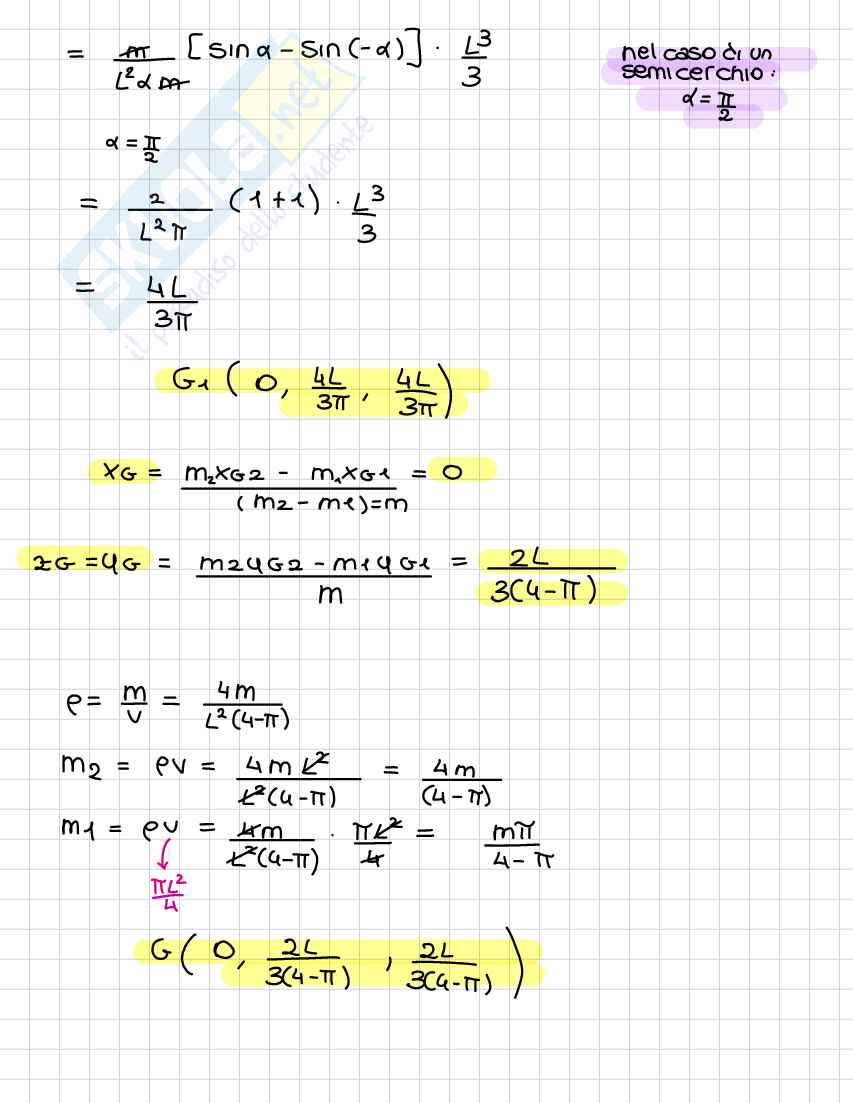 = m/(L²αm) [sinα – sin(-α)] · L³/3
nel caso di un
semicerchio:
α = π/2
α = π/2
= 2/(L²π) (1+1) · L³/3
= 4L/3π
G1 ( 0, 4L/3π, 4L/3π )
xG = (m₂xG2 - m₁xG1)/((m2 - m1)=m) = 0
zG = yG = (m2yG2 - m1yG1)/m = 2L/(3(4-π))
ρ = m/v = 4m/(L²(4-π))
m2 = ρv = 4mL²/(L²(4-π)) = 4m/(4-π)
m1 = ρv = 4m/(L²(4-π)) · πL²/4 = mπ/(4-π)
πL²/4
G ( 0, 2L/(3(4-π)), 2L/(3(4-π)) )
SKUOLA.net
il paradiso dello studente